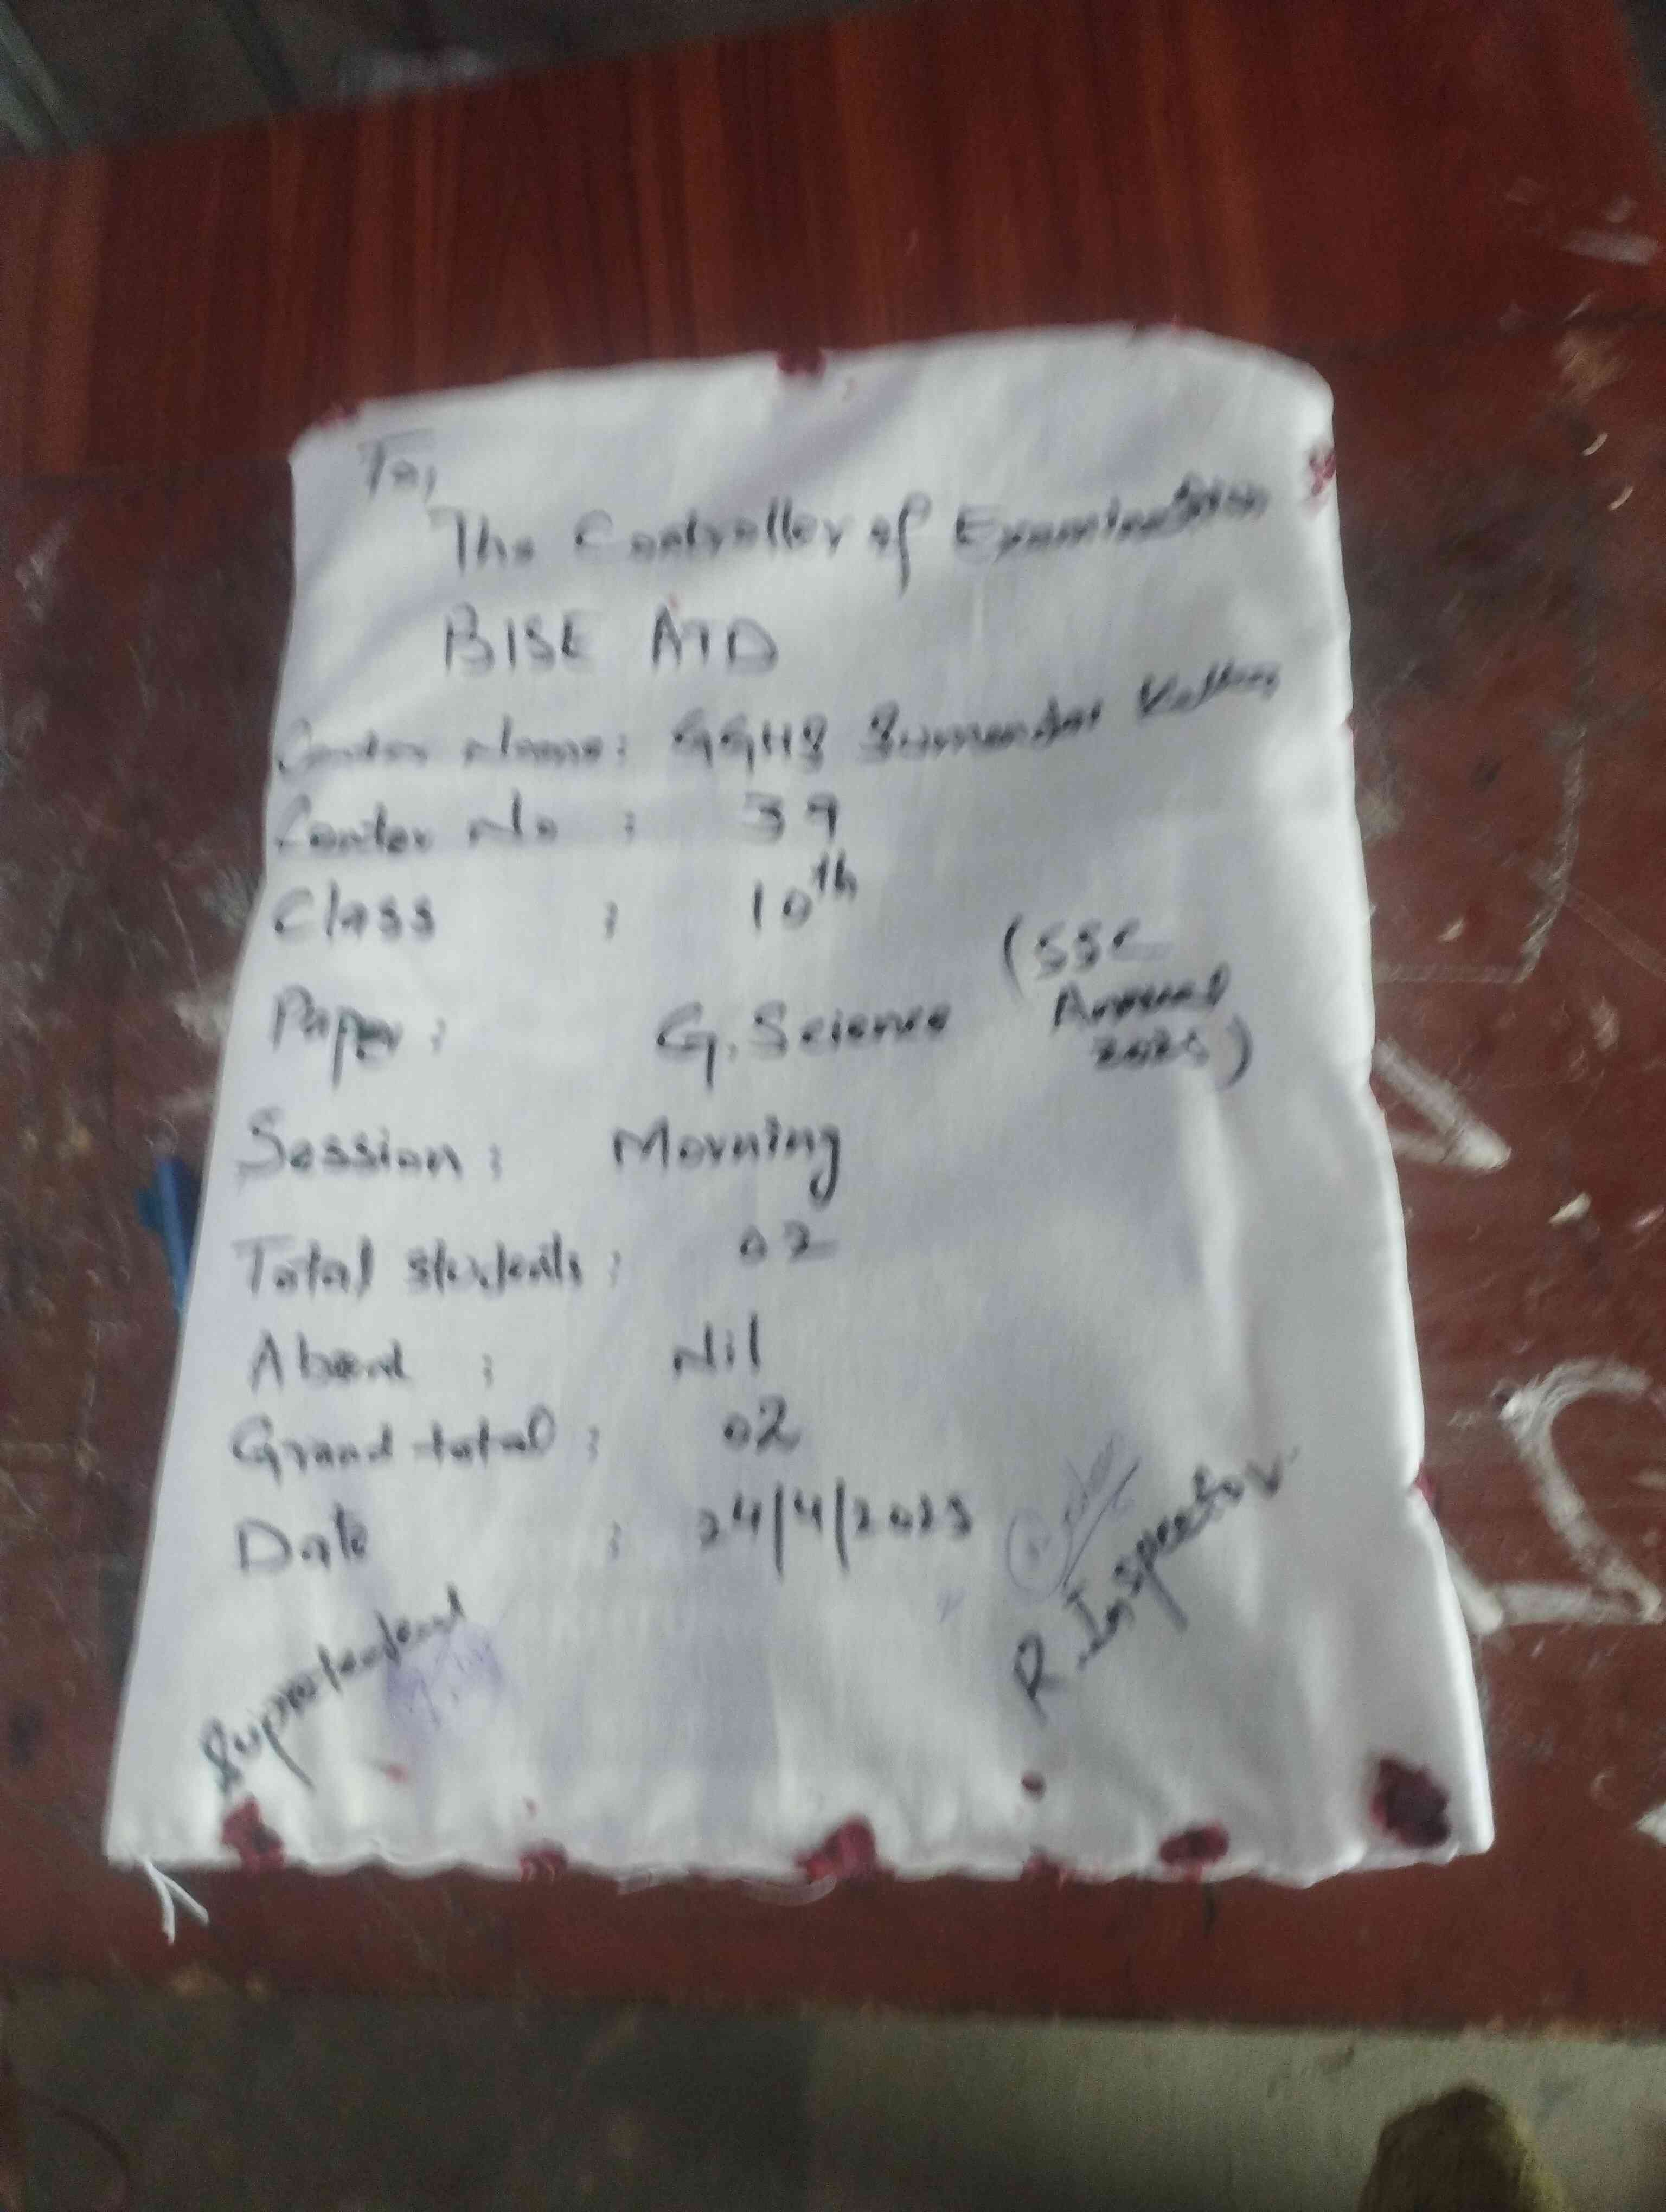 To,
The Controller of Examination
BISE ATD
Center Name: GGHS Sumandar
Center No : 39
Class : 10th
Paper: G. Science (SSC
Annual
2025)
Session: Morning
Total students: 02
Absent : Nil
Grand total: 02
Date : 24/4/2025
R. Inspector